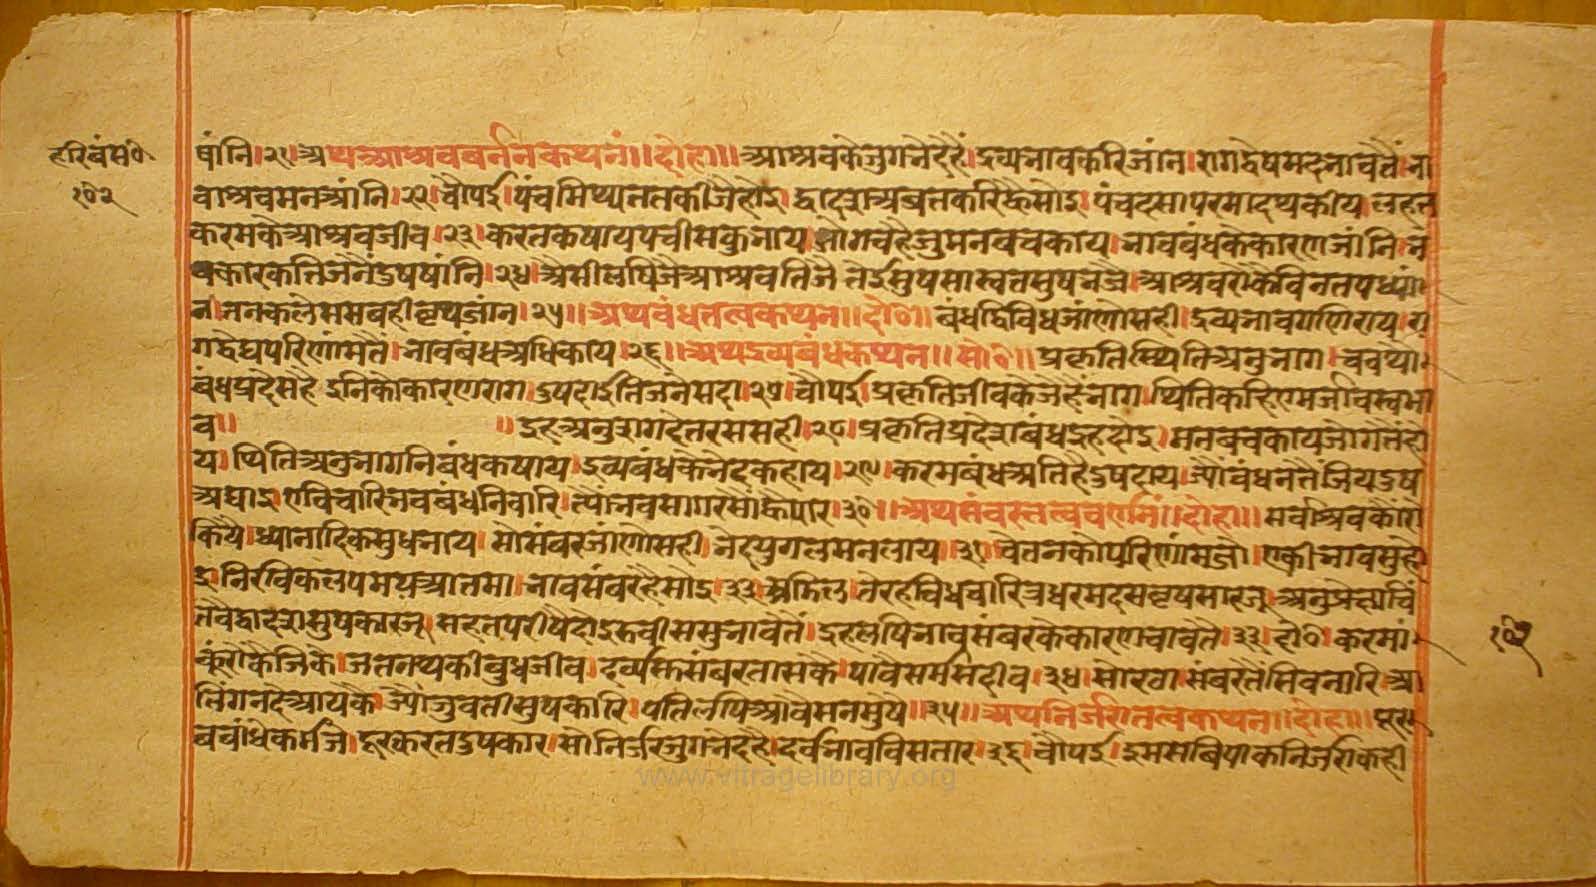 हरिबंस॰
१७२
षांनि।२१।अथआश्रवबर्ननकथनं॥दोहा॥आश्रवकेजुगनेदहै।द्रव्यभावकरिजांन।रागद्वेषमदभावतै।भा
वाश्रवमनआंनि।२२।चौपई।पंचमिथ्यततकीजैहोइ।द्वादशअब्रतकरिकैसोइ।पंचदसापरमादथकीय।लहत
करमकैआश्रवजीव।२३।करतकषायपचीसकुभाय।जोगवहैजुमनवचकाय।भावबंधकेकारणजांनि।
कारकेतिजनैंदुषषांनि।२४।अैसीलषिजैआश्रवतिजै।तेईसुषसास्वतसुष।आश्रवरोकेविनतप
न।तनकलेससबहीवृथजांन।२५॥अथबंधतत्वकथन॥दो०॥बंधद्विविधजांणोसही।द्रव्यभावगणिराय।रा
गद्वेषपरिणांमतै।भावबंधअधिकाय।२६॥अथद्रव्यबंधकथन॥सो०॥प्रकृतिस्थितिअनुभाग।
बंधप्रदेसहै।इनिकोकारणराग।दुषदाईतिजनैसदा।२७।चौपई।प्रकृतिजीवकै।थितिकहिएमर्जावस्वभा
व॥॥इहअनुरागहेतरससही।२८।प्रकृतिप्रदेशबंधइहदोइ।मनबचकायजोगतैंहो
य।थितिअनुभागनिबंधकषाय।द्रव्यबंधकेनेदकहाय।२९।करमबंधअतिहैदुषदाय।ज्यौबंधनतैजियदुष
अघाइ।एविचारिभवबंधनिवारि।त्यौंभवसागरसौंह्वैपार।३०॥अथसंवरतत्ववर्णनं॥दोहा॥सर्वाश्रवकौरो
किये।ध्यानादिकसुधभाय।सोसंबरजांणोसही।नेदयुगलमनलाय।३१।चेतनकोपरिणांमजो।एकीभावसुहो
इ।निरविकलपमयआतमा।भावसंवरहैसोइ।३२।अडिल।तेरहविधचारित्रधरमदसवृषसारजू।अनुप्रेक्षाचिं
तवैद्वादशसुषकारजू।सहतपरीषैदोइवीससुभावतै।इहलषिभावसंबरकेकारणचावतै।३३।दो०।करमां
कूंरोकैजिके।जतनथकीबुधजीव।दर्व्यसंबरतासकै।पावैसर्मसदीव।३४।सोरठा।संबरतैसिवनारि।आ
लिंगनदेआयकै।ज्यौंजुवतीसुषकारि।पतिलषिआवैमनमुषै॥३५॥अथनिर्जरातत्वकथन॥दोहा॥पूरब
बांधेकर्मजे।दूरकरतदुषकार।सोनिर्जरिजुगनेदहै।दर्वभावविसतार।३६।चौपई।इमसबिपाकनिर्जराकही
www.vitragelibrary.org